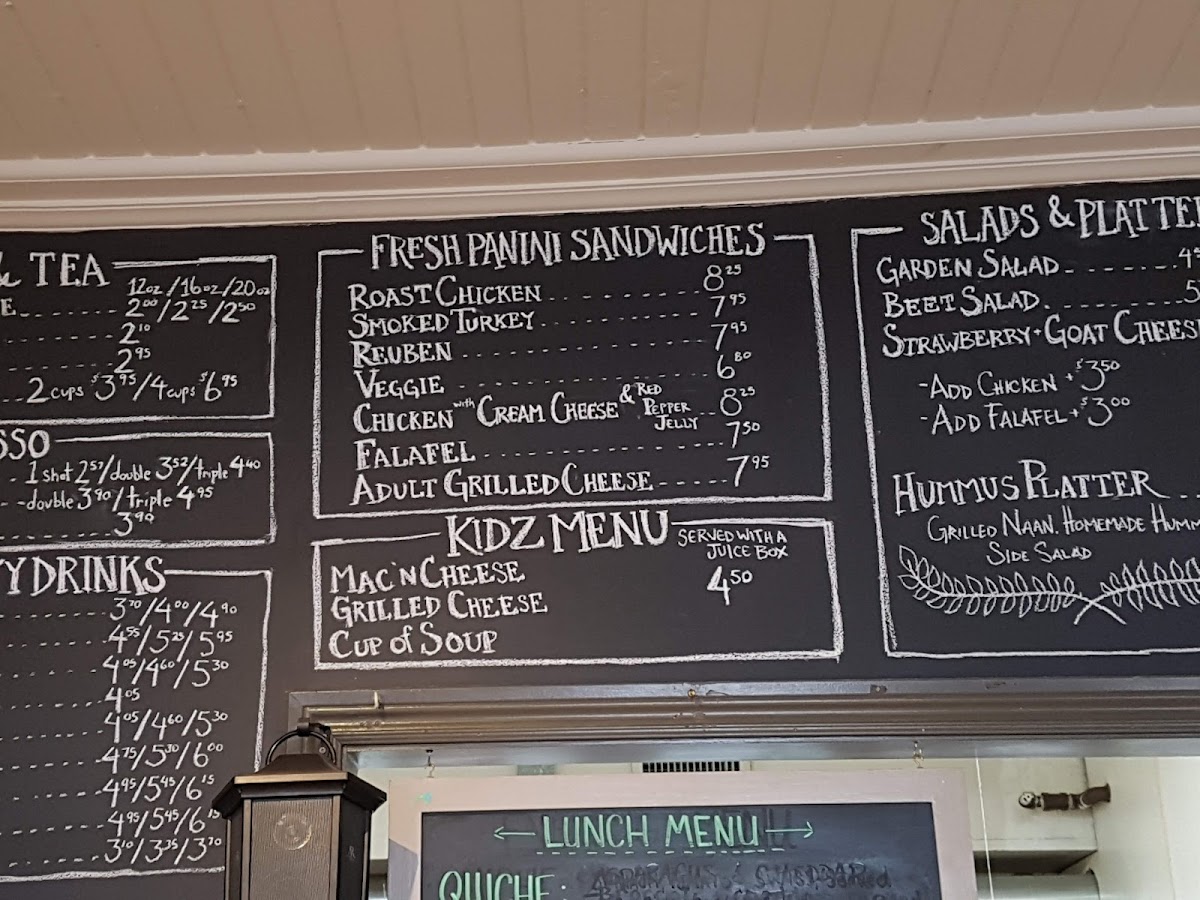 & TEA
12oz/16oz/20oz
E 2.00/2.25/2.50
2.10
2.95
2 cups $3.95/4 cups $6.95
SSO
1 shot 2.52/double 3.52/triple 4.40
double 3.90/triple 4.95
3.90
Y DRINKS
3.70/4.00/4.90
4.55/5.25/5.95
4.05/4.60/5.30
4.05
4.05/4.60/5.30
4.75/5.30/6.00
4.95/5.45/6.15
4.95/5.45/6.15
3.10/3.35/3.70
FRESH PANINI SANDWICHES
ROAST CHICKEN 8.25
SMOKED TURKEY 7.95
REUBEN 7.95
VEGGIE 6.80
CHICKEN with CREAM CHEESE & RED PEPPER JELLY 8.25
FALAFEL 7.50
ADULT GRILLED CHEESE 7.95
KIDZ MENU SERVED WITH A JUICE BOX
MAC 'N CHEESE 4.50
GRILLED CHEESE
CUP of SOUP
SALADS & PLATTE
GARDEN SALAD 4
BEET SALAD 5
STRAWBERRY + GOAT CHEES
- ADD CHICKEN + $3.50
- ADD FALAFEL + $3.00
HUMMUS PLATTER
GRILLED NAAN. HOMEMADE HUMM
SIDE SALAD
LUNCH MENU
QUICHE: